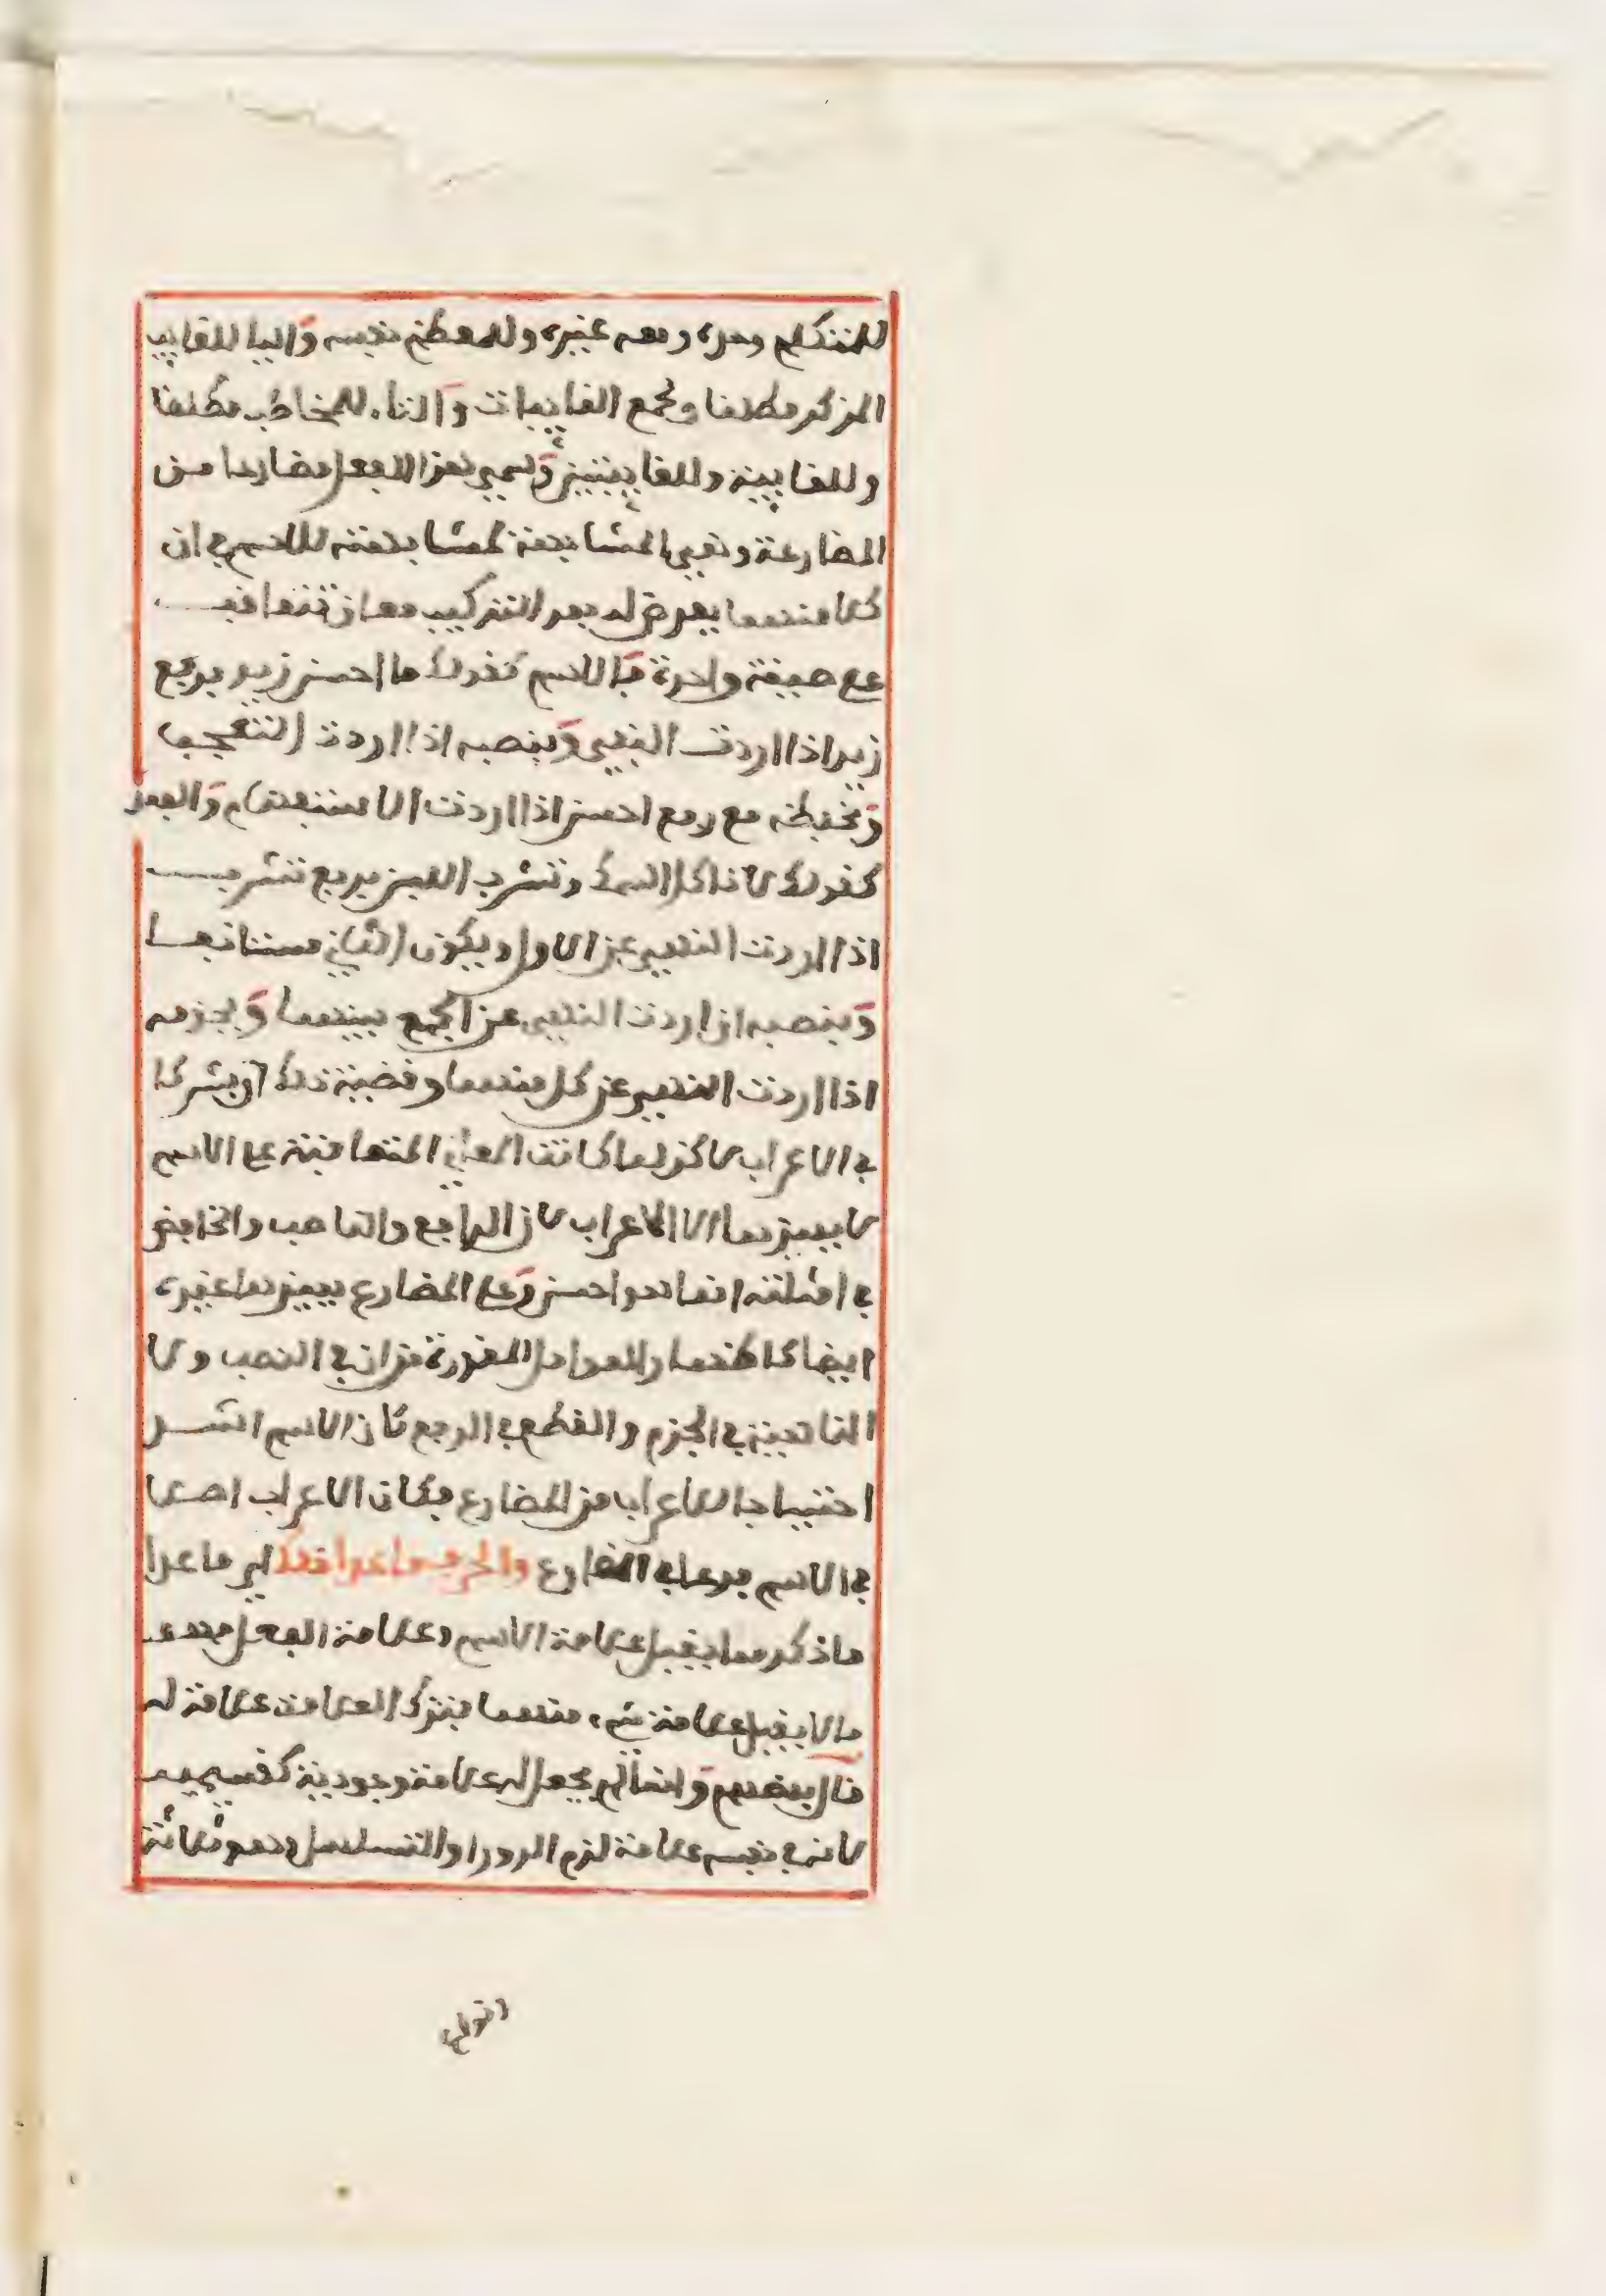 للمتكلم وحده ومعه غيره وللمعظم نفسه واليا للغايب
المذكر مطلقا ولجمع الغايبات والتاء للمخاطب مطلقا
وللغايبة وللغايبتين وسمي هذا الفعل مضارعا من
المضارعة وهي المشابهة لمشابهته للاسم في ان
كلا منهما يعرض له بعد التركيب معان تتعاقب
على صيغة واحدة فالاسم كقولك ما احسن زيد برفع
زيد اذا اردت النفي وبنصبه اذا اردت التعجب
وبخفظه مع رفع احسن اذا اردت الاستفهام والفعل
كقولك لا تاكل السمك وتشرب اللبن برفع تشرب
اذا اردت النهي عن الاول ويكون الثاني مستانفا
وبنصبه ان اردت النهي عن الجمع بينهما وبجزمه
اذا اردت النهي عن كل منهما وقضية ذلك ان يشركا
في الاعراب لاكن لما كانت المعاني المتعاقبة على الاسم
لا يميزها الا الاعراب لان الرافع والناصب والخافض
في امثلته انما هو احسن وعلى المضارع يميزها غيره
ايضا كاظهار العوامل المقدرة من ان في النصب ولا
الناهية في الجزم والقطع في الرفع كان الاسم اشد
احتياجا للاعراب من المضارع فكان الاعراب اصلا
في الاسم فرعا في المضارع والحرف ما عدا ذلك اي ما عدا
ما ذكر مما يقبل علامة الاسم وعلامة الفعل فهو
ما لا يقبل علامة شيء منهما فترك العلامة علامة له
قال بعضهم وانما لم يجعل له علامة وجودية كقسيميه
لانه في نفسه علامة لزم الدور او التسلسل وهو ثلاثة